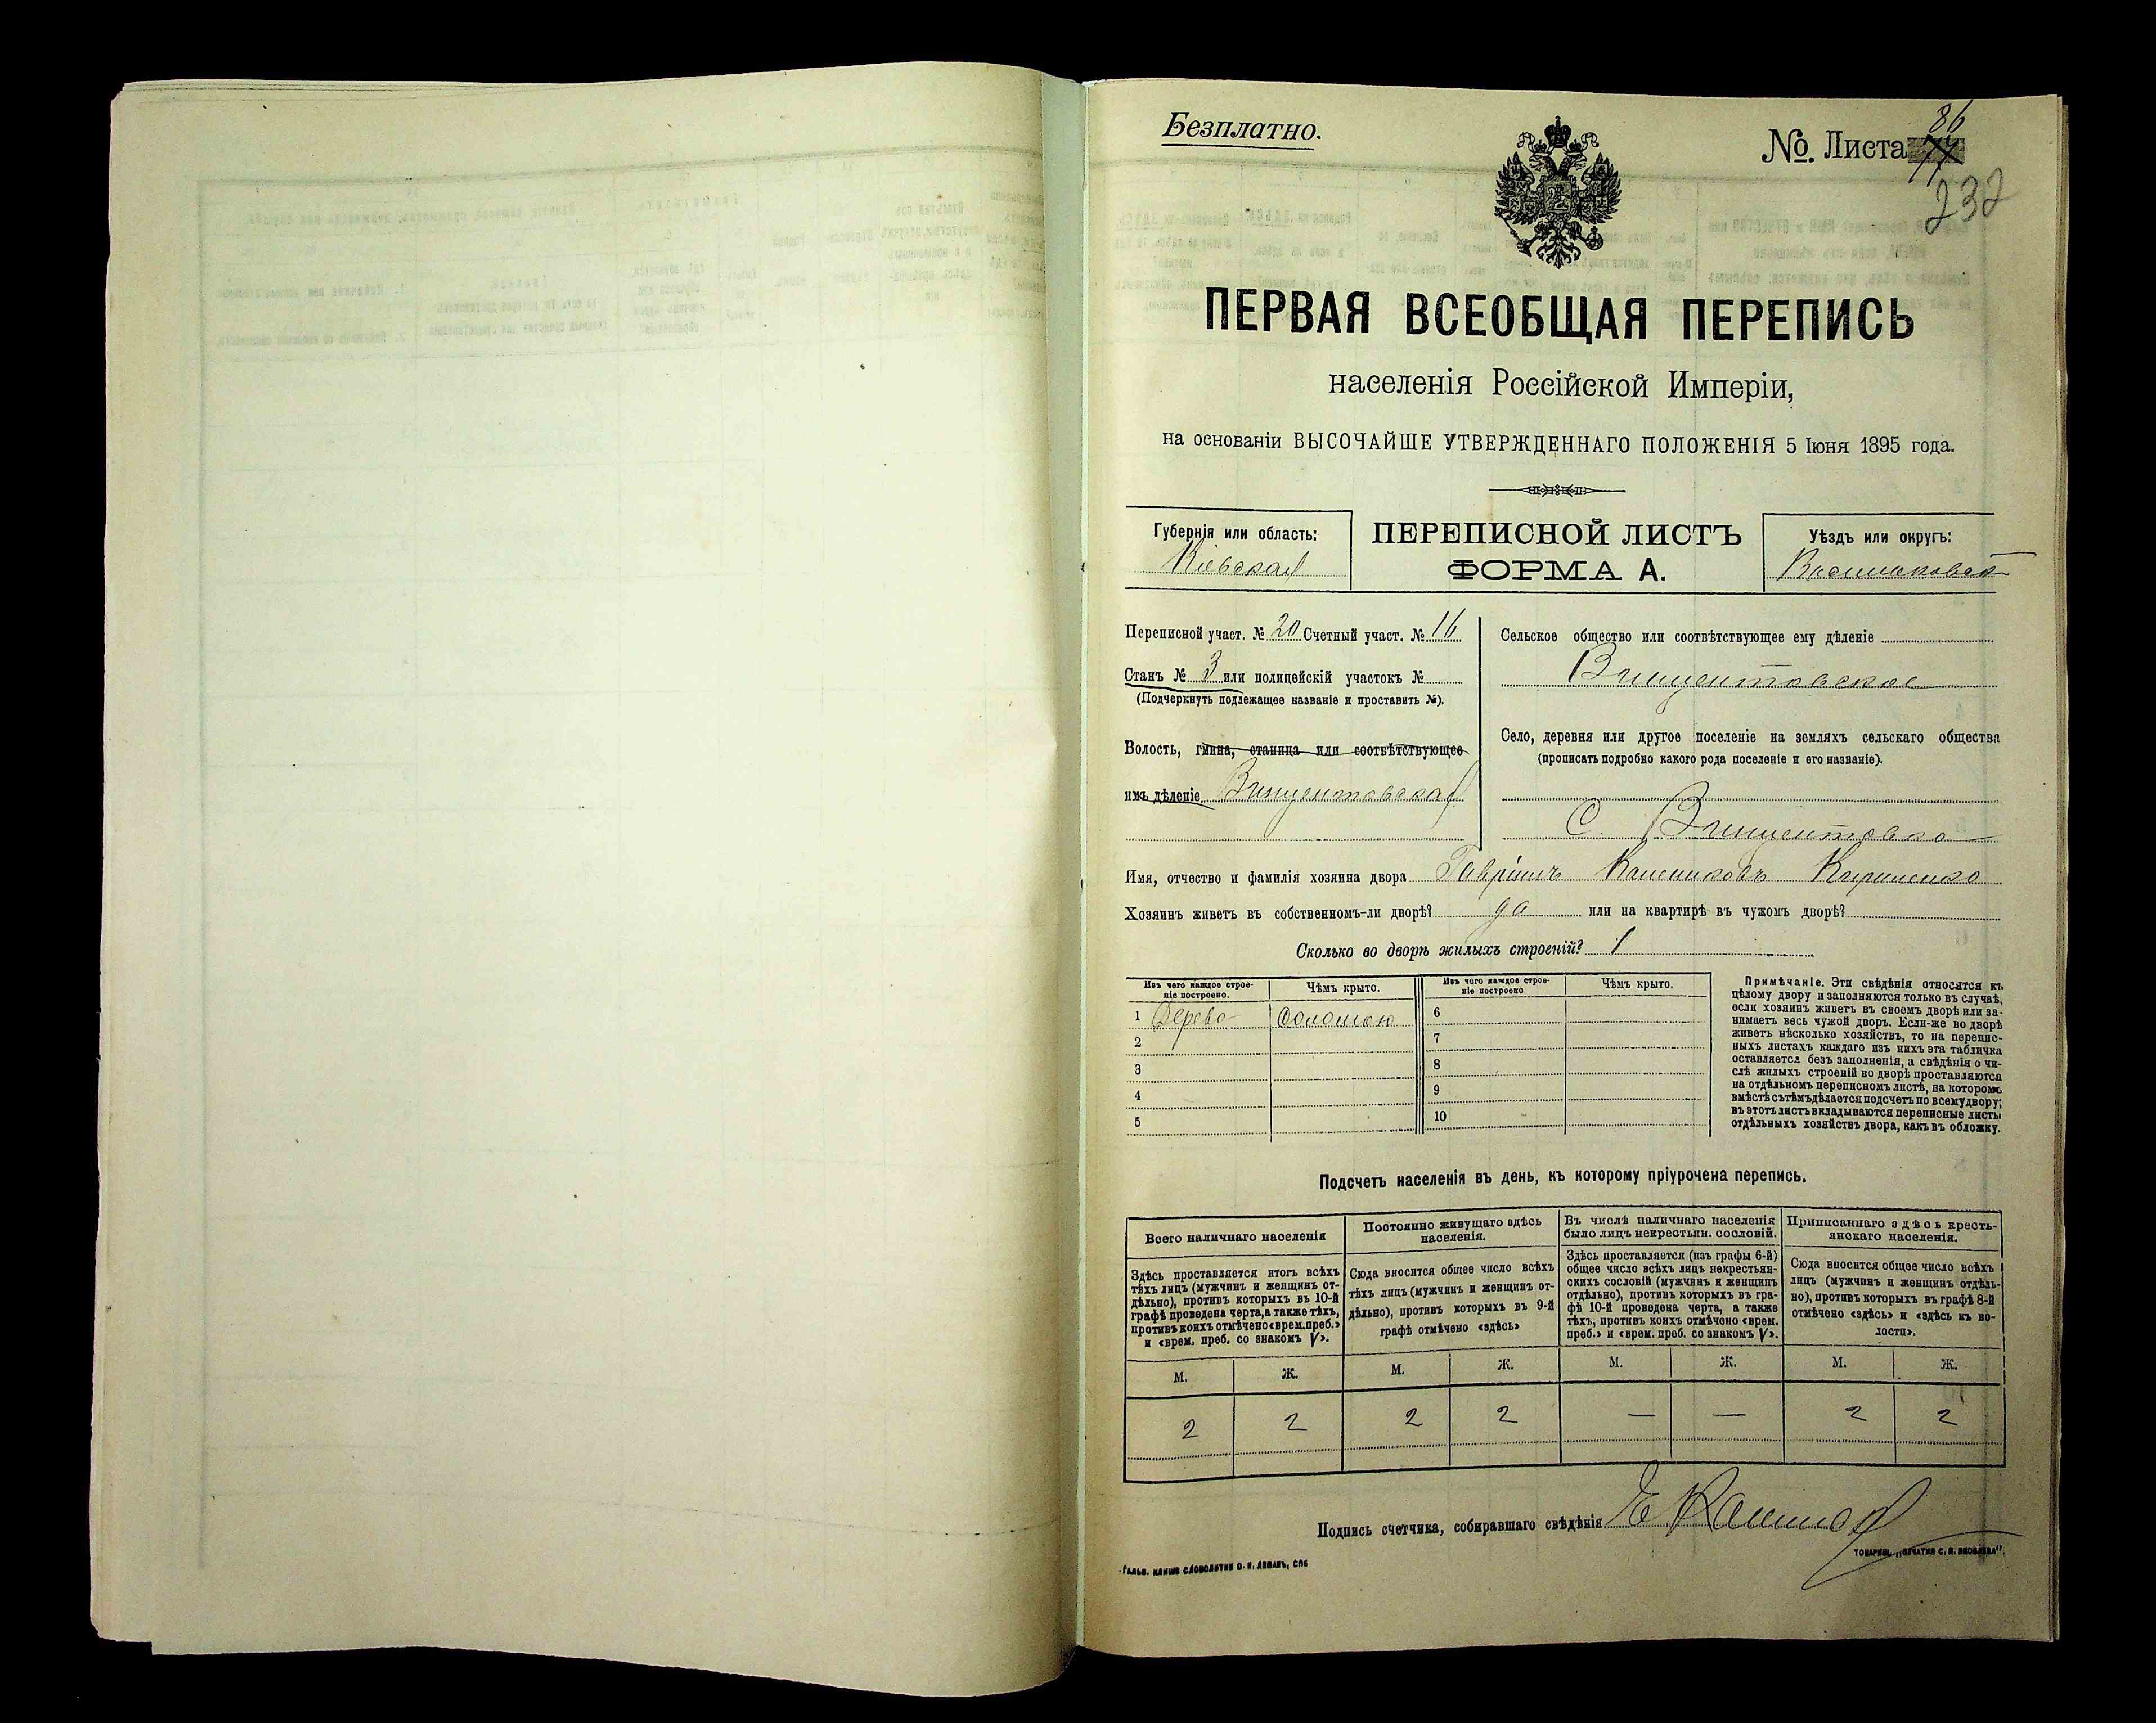 Безплатно.
№. Листа 77 86
232
ПЕРВАЯ ВСЕОБЩАЯ ПЕРЕПИСЬ
населенія Россійской Имперіи,
на основаніи ВЫСОЧАЙШЕ УТВЕРЖДЕННАГО ПОЛОЖЕНІЯ 5 Іюня 1895 года.
Губернія или область:
Кіевская
ПЕРЕПИСНОЙ ЛИСТЪ
ФОРМА А.
Уѣздъ или округъ:
Васильковскій
Переписной участ. № 20 Счетный участ. № 16
Станъ № 3 или полицейскій участокъ №
(Подчеркнуть подлежащее названіе и проставить №).
Волость, гмина, станица или соотвѣтствующее
имъ дѣленіе Винцентовская
Сельское общество или соотвѣтствующее ему дѣленіе
Винцентовское
Село, деревня или другое поселеніе на земляхъ сельскаго общества
(прописать подробно какого рода поселеніе и его названіе).
С. Винцентовка
Имя, отчество и фамилія хозяина двора Гавріилъ
Хозяинъ живетъ въ собственномъ-ли дворѣ? да или на квартирѣ въ чужомъ дворѣ?
Сколько во дворѣ жилыхъ строеній? 1
Изъ чего каждое строе-
ніе построено.
Чѣмъ крыто.
Изъ чего каждое строе-
ніе построено
Чѣмъ крыто.
1 Дерева Соломою 6
2 7
3 8
4 9
5 10
Примѣчаніе. Эти свѣдѣнія относятся къ
цѣлому двору и заполняются только въ случаѣ,
если хозяинъ живетъ въ своемъ дворѣ или за-
нимаетъ весь чужой дворъ. Если-же во дворѣ
живетъ нѣсколько хозяйствъ, то на перепис-
ныхъ листахъ каждаго изъ нихъ эта табличка
оставляется безъ заполненія, а свѣдѣнія о чи-
слѣ жилыхъ строеній во дворѣ проставляются
на отдѣльномъ переписномъ листѣ, на которомъ
вмѣстѣ съ тѣмъ дѣлается подсчетъ по всему двору;
въ этотъ листъ вкладываются переписные листы
отдѣльныхъ хозяйствъ двора, какъ въ обложку.
Подсчетъ населенія въ день, къ которому пріурочена перепись.
Всего наличнаго населенія
Здѣсь проставляется итогъ всѣхъ
тѣхъ лицъ (мужчинъ и женщинъ от-
дѣльно), противъ которыхъ въ 10-й
графѣ проведена черта, а также тѣхъ,
противъ коихъ отмѣчено «врем. преб.»
и «врем. преб. со знакомъ V».
Постоянно живущаго здѣсь
населенія.
Сюда вносится общее число всѣхъ
тѣхъ лицъ (мужчинъ и женщинъ от-
дѣльно), противъ которыхъ въ 9-й
графѣ отмѣчено «здѣсь»
Въ числѣ наличнаго населенія
было лицъ некрестьян. сословій.
Здѣсь проставляется (изъ графы 6-й)
общее число всѣхъ лицъ некрестьян-
скихъ сословій (мужчинъ и женщинъ
отдѣльно), противъ которыхъ въ гра-
фѣ 10-й проведена черта, а также
тѣхъ, противъ коихъ отмѣчено «врем.
преб.» и «врем. преб. со знакомъ V».
Приписаннаго здѣсь кресть-
янскаго населенія.
Сюда вносится общее число всѣхъ
лицъ (мужчинъ и женщинъ отдѣль-
но), противъ которыхъ въ графѣ 8-й
отмѣчено «здѣсь» и «здѣсь къ во-
лости».
М. Ж. М. Ж. М. Ж. М. Ж.
2 2 2 2 — — 2 2
Подпись счетчика, собиравшаго свѣдѣнія
Гальв. клише словолитни О. И. Леманъ, СПб
Товарищ. „Печатня С. П. Яковлева“.